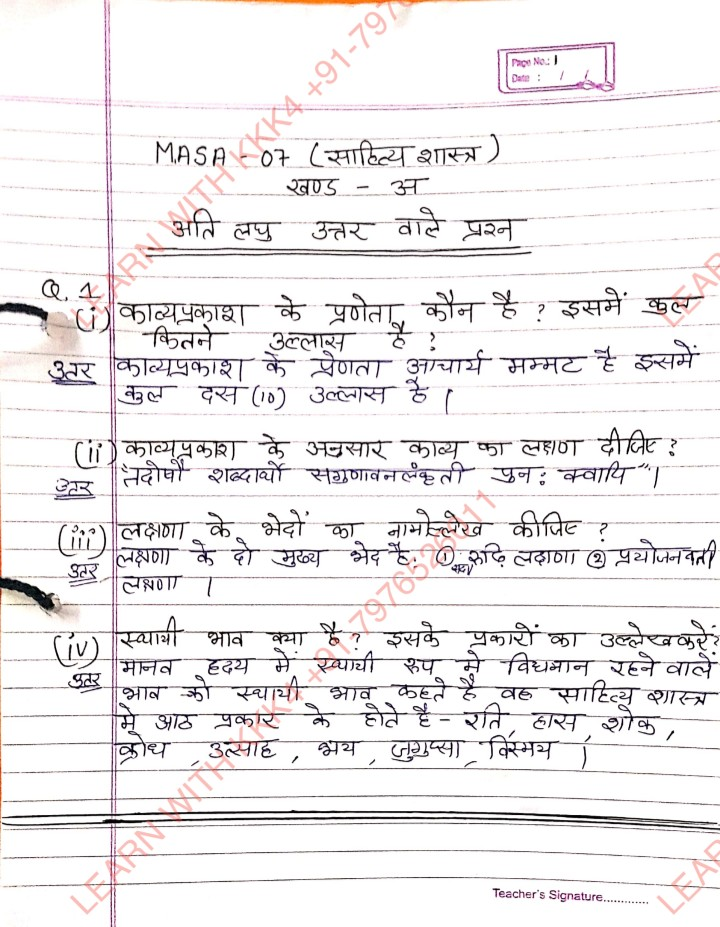 Page No.: 1
Date : / /
MASA - 07 (साहित्य शास्त्र)
खण्ड - अ
अति लघु उत्तर वाले प्रश्न
Q. 1
(i) काव्यप्रकाश के प्रणेता कौन है ? इसमें कुल
कितने उल्लास है ?
उत्तर काव्यप्रकाश के प्रेणता आचार्य मम्मट है इसमें
कुल दस (10) उल्लास है ।
(ii) काव्यप्रकाश के अनुसार काव्य का लक्षण दीजिए ?
उत्तर "तदोषौ शब्दार्थो सगुणावनलंकृती पुन: क्वायि" ।
(iii) लक्षणा के भेदों का नामोल्लेख कीजिए ?
उत्तर लक्षणा के दो मुख्य भेद है. ① रूढि लक्षणा ② प्रयोजनवती
लक्षणा ।
(iv) स्थायी भाव क्या है ? इसके प्रकारों का उल्लेख करें ?
उत्तर मानव हृदय में स्थायी रूप मे विधमान रहने वाले
भाव को स्थायी भाव कहते है वह साहित्य शास्त्र
मे आठ प्रकार के होते है - रति, हास, शोक,
क्रोध , उत्साह , भय , जुगुप्सा , विस्मय ।
Teacher's Signature.............
LEARN WITH KKK4 +91-7976526011